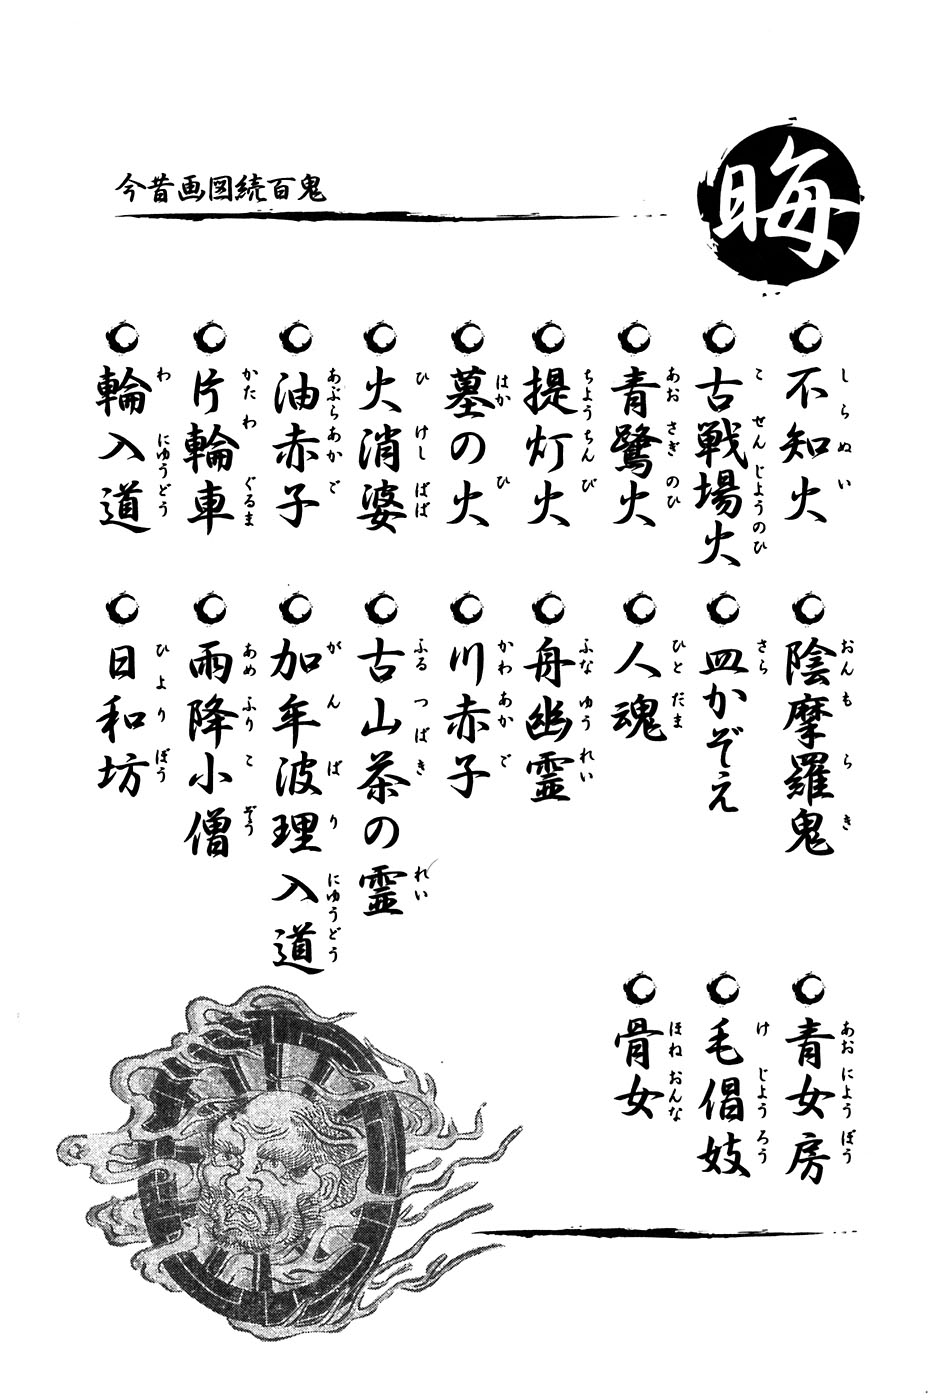 晦
今昔画図続百鬼
不知火
しらぬい
古戦場火
こせんじようのひ
青鷺火
あおさぎのひ
提灯火
ちようちんび
墓の火
はかひ
火消婆
ひけしばば
油赤子
あぶらあかご
片輪車
かたわぐるま
輪入道
わにゆうどう
陰摩羅鬼
おんもらき
皿かぞえ
さら
人魂
ひとだま
舟幽霊
ふなゆうれい
川赤子
かわあかご
古山茶の霊
ふるつばきれい
加年波理入道
がんばりにゆうどう
雨降小僧
あめふりこぞう
日和坊
ひよりぼう
青女房
あおにようぼう
毛倡妓
けじようろう
骨女
ほねおんな